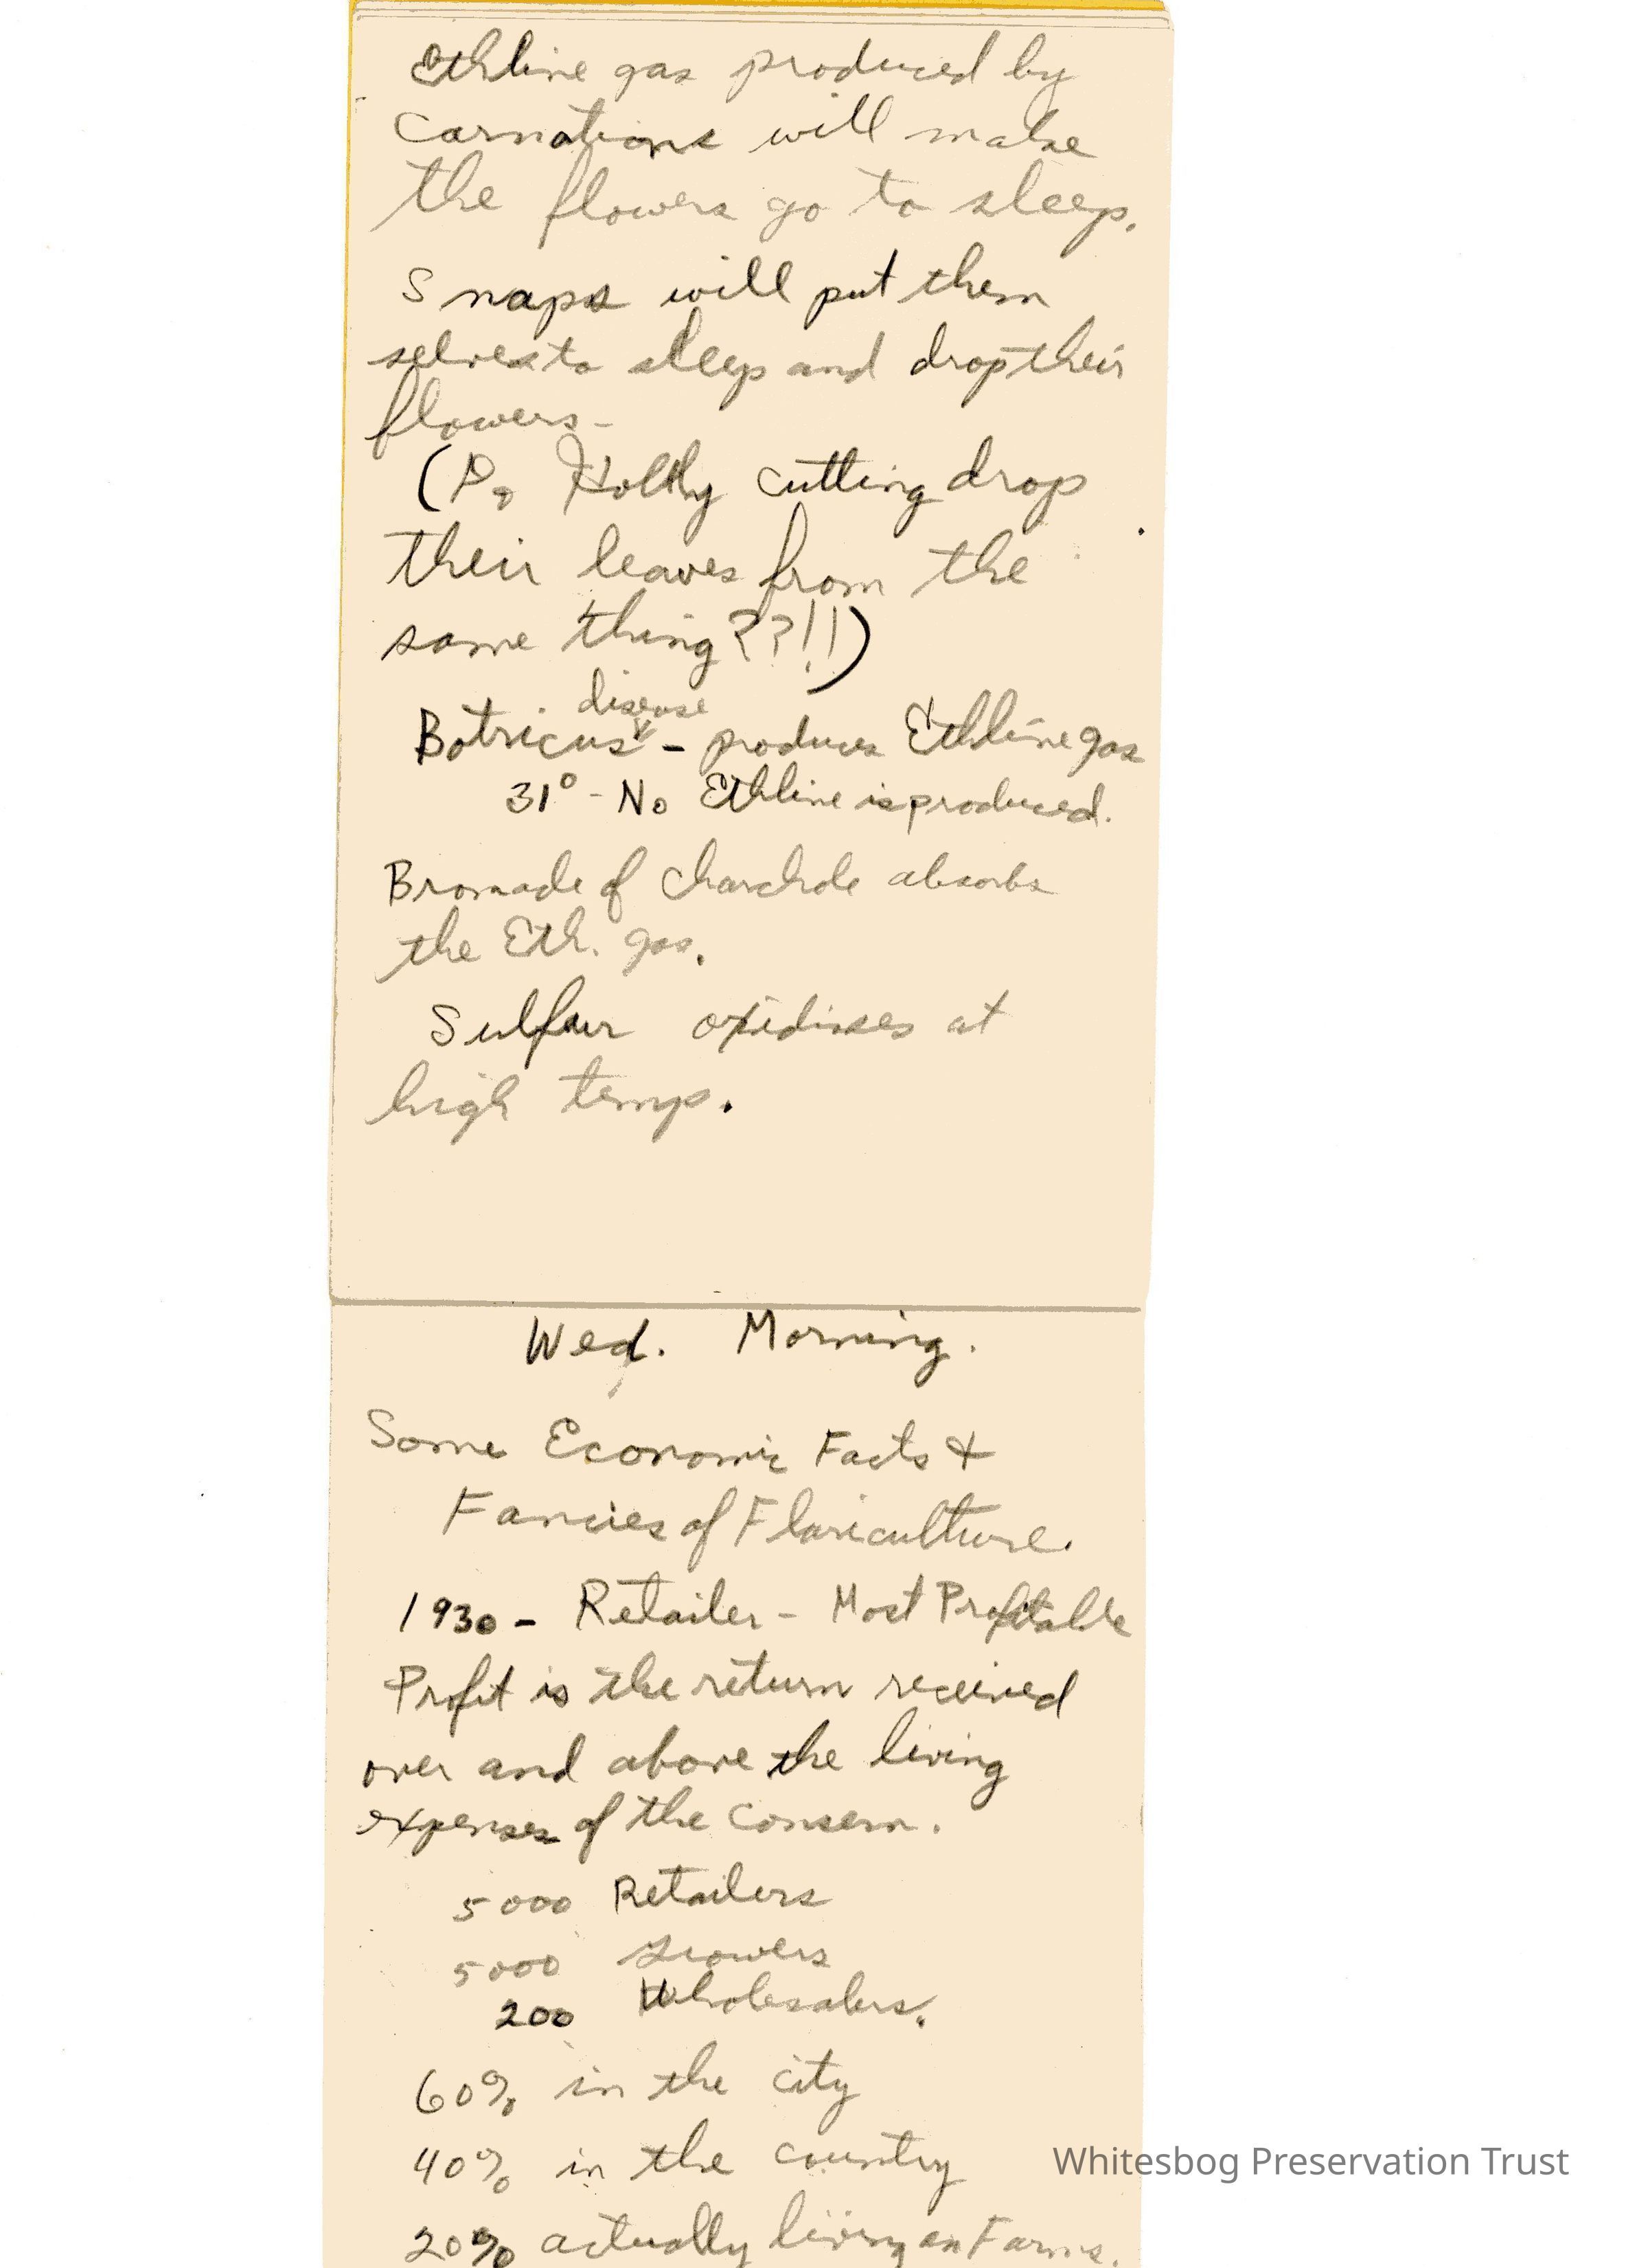 Ethline gas produced by
Carnations will make
the flowers go to sleep.
Snaps will put them
selves to sleep and drop their
flowers-
(Do Holly cutting drop
their leaves from the
same thing??!!)
disease
Botricus - produces Ethline gas
31° - No Ethline is produced.
Bromade of charchole absorbs
the Eth. gas.
Sulfur oxidises at
high temp.
Wed. Morning.
Some Economic Facts &
Fancies of Floriculture.
1930 - Retailer - Most Profitable
Profit is the return received
over and above the living
expenses of the consern.
5000 Retailers
5000 Growers
200 Wholesalers.
60% in the city
40% in the country
20% actually living on Farms.
Whitesbog Preservation Trust